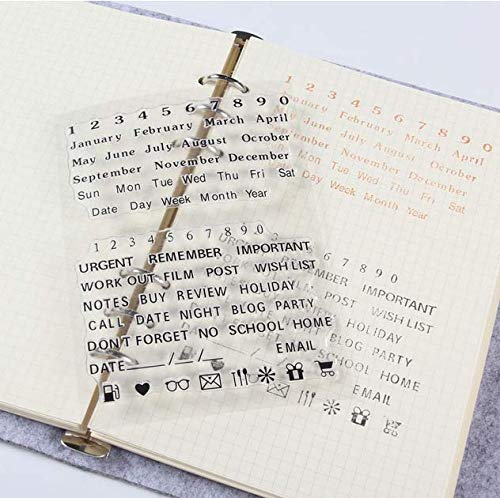 1 2 3 4 5 6 7 8 9 0
January February March April
May June July August October
September November December
Sun Mon Tue Wed Thu Fri Sat
Date Day Week Month Year
1 2 3 4 5 6 7 8 9 0
URGENT REMEMBER IMPORTANT
WORK OUT FILM POST WISH LIST
NOTES BUY REVIEW HOLIDAY
CALL DATE NIGHT BLOG PARTY
DON'T FORGET NO SCHOOL HOME
DATE____/__/__ EMAIL
1 2 3 4 5 6 7 8 9 0
January February March April
May June July August October
September November December
Sun Mon Tue Wed Thu Fri Sat
Date Day Week Month Year
7 8 9 0
URGENT REMEMBER IMPORTANT
FILM POST WISH LIST
REVIEW HOLIDAY
BLOG PARTY
SCHOOL HOME
EMAIL